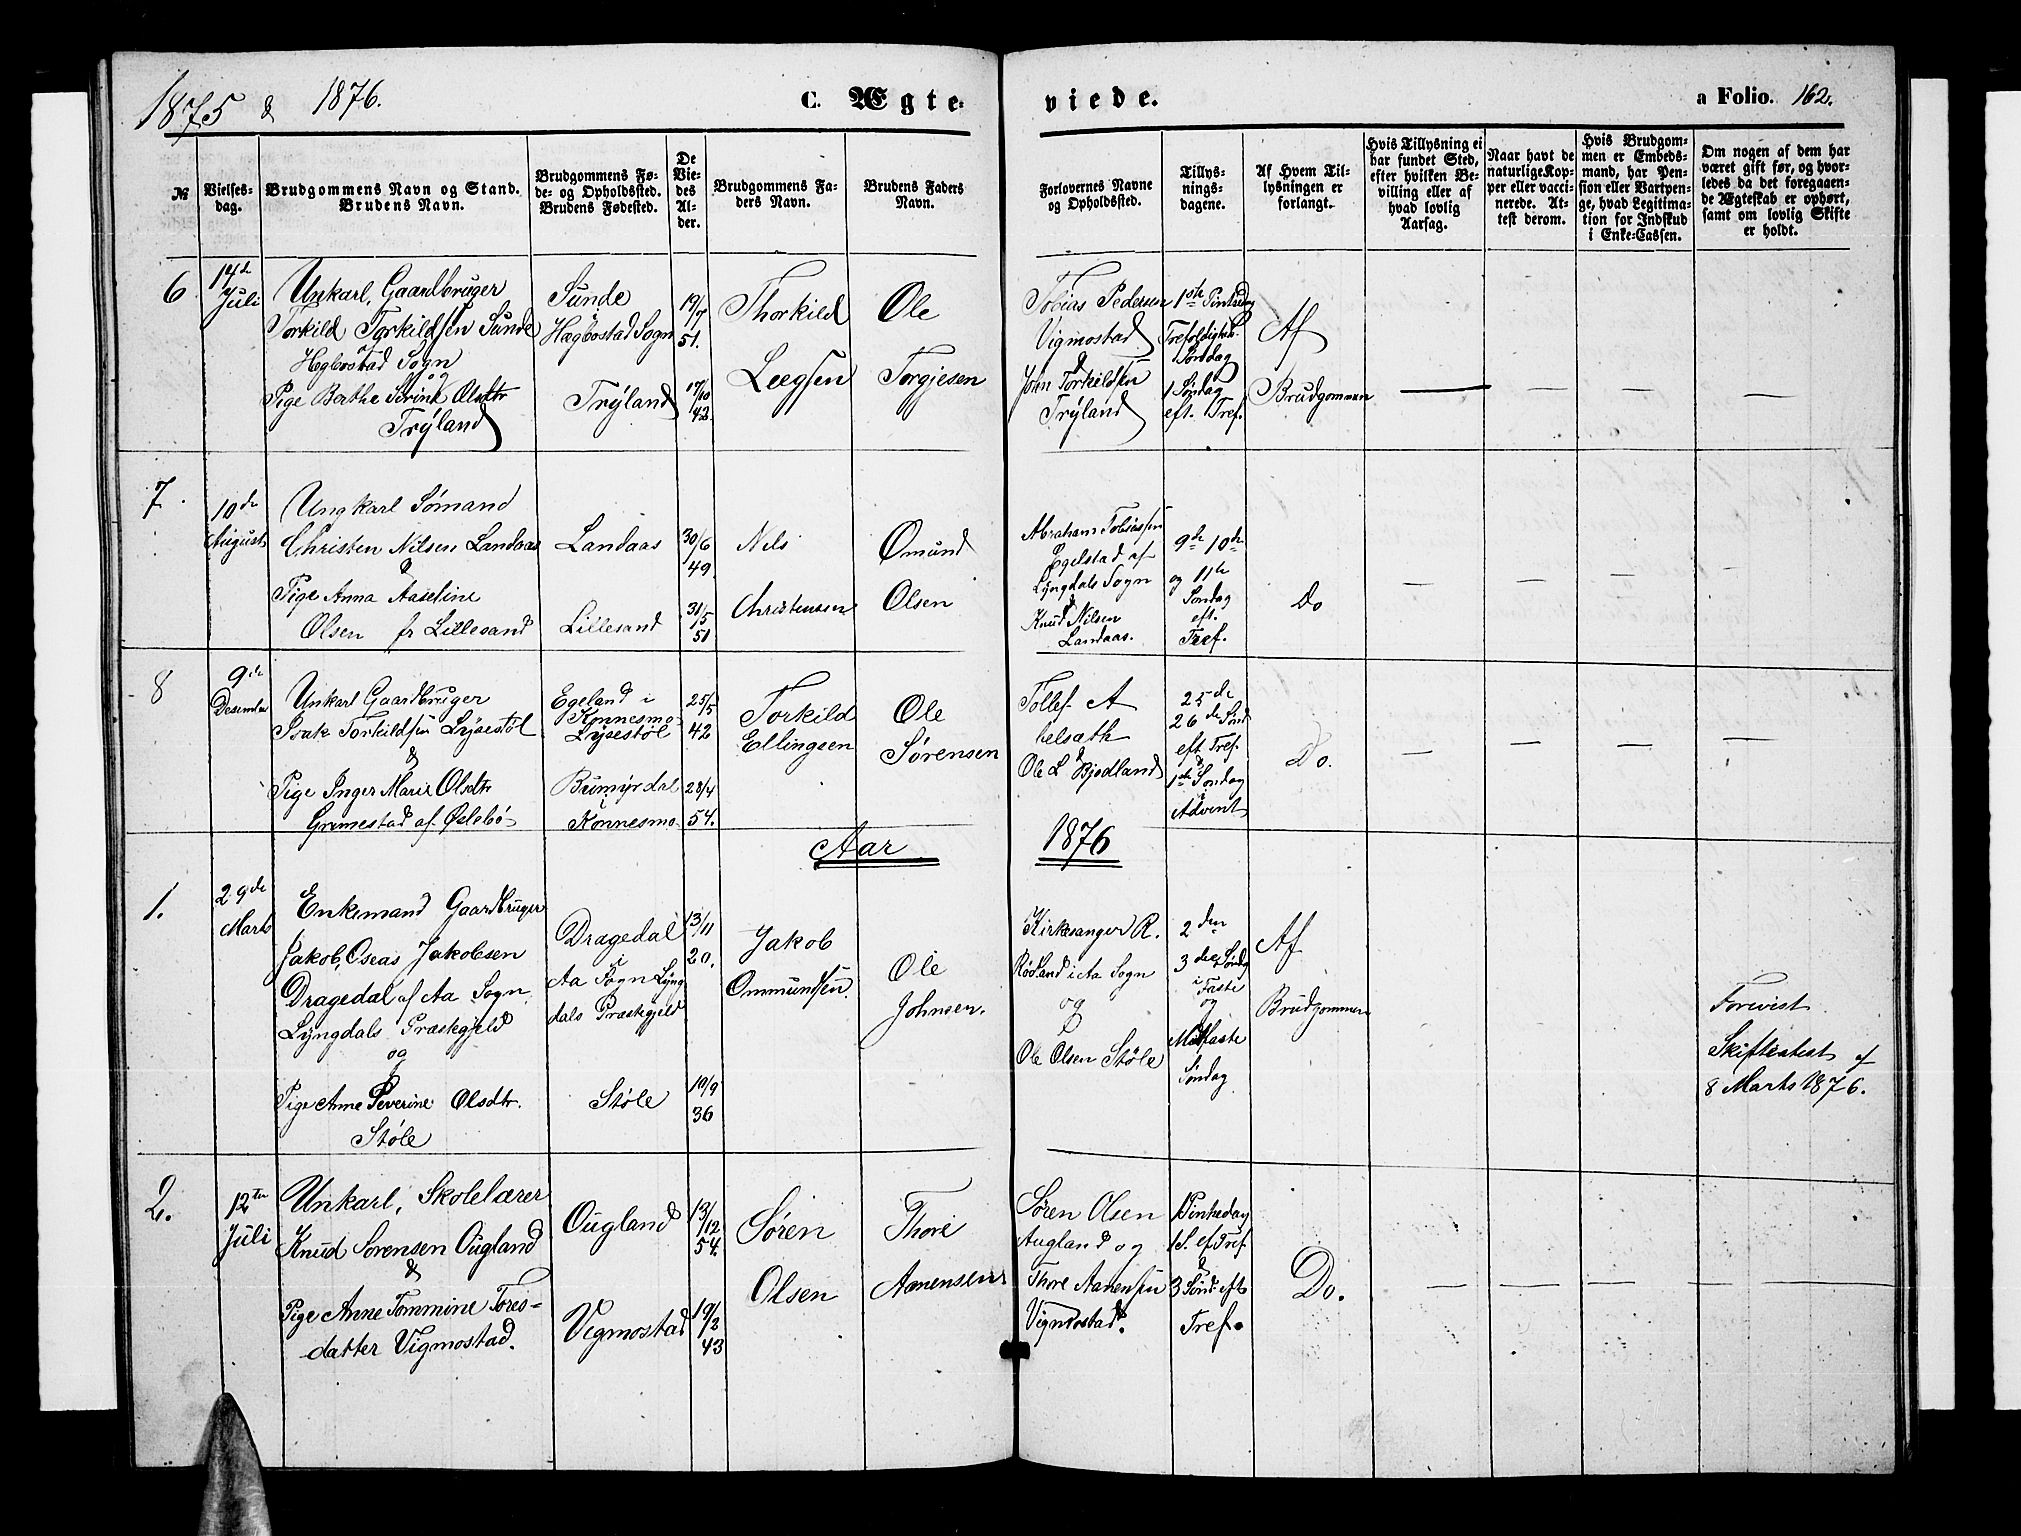 1875 & 1876.
C. Ægte-
viede.
a Folio. 162.
№
Vielses-
dag.
Brudgommens Navn og Stand.
Brudens Navn.
Brudgommens Fø-
de- og Opholdssted.
Brudens Fødested.
De
Vie-
des
Al-
der.
Brudgommens Fa-
ders Navn.
Brudens Faders
Navn.
Forlovernes Navne
og Opholdssted.
Tillys-
nings-
dagene.
Af Hvem Til-
lysningen er
forlangt.
Hvis Tillysning ei
har fundet Sted,
efter hvilken Be-
villing eller af
hvad lovlig
Aarsag.
Naar havt de
naturlige Kop-
per eller vacci-
nerede. At-
test derom.
Hvis Brudgom-
men er Embeds-
mand, har Pen-
sion eller Vartpen-
ge, hvad Legitima-
tion for Indskud
i Enke-Cassen.
Om nogen af dem har
været gift før, og hvor-
ledes da det foregaaen-
de Ægteskab er ophørt,
samt om lovlig Skifte
er holdt.
6
14de
Juli
Unkarl, Gaardbruger
Torkild Torkildsen Sunde
Hegbostad Sogn
og
Pige Berthe Serine Olsdtr
Trÿland
Sunde
Hægbostad Sogn
Trÿland
19/7
51.
17/10
42.
Thorkild
Leegsen
Ole
Torgjesen
Tobias Pedersen
Vigmostad
&
John Torkildsen
Trÿland
1ste Pintsedag
Trefoldigheds
Søndag
1 Søndag
eft. Tref.
Af
Brudgommen
7.
10de
August
Ungkarl Sømand
Christen Nilsen Landaas
&
Pige Anna Aaseline
Olsen fr Lillesand
Landaas
Lillesand
30/6
49.
31/5
51
Nils
Christensen
Omund
Olsen
Abraham Tobiassen
Egelstad af
Lyngdals Sogn
&
Knud Nilsen
Landaas.
9de 10de
og 11te
Søndag
eft.
Tref.
Do
8
9de
Desember
Unkarl Gaardbruger
Isak Torkildsen Lÿsestøl
&
Pige Inger Marie Olsdtr
Grimestad af Øslebø
Egeland i
Konnesmo
Lÿsestøl
Bumyrdal
i
Konnesmo
25/5
42
28/4
54.
Torkild
Ellingsen
Ole
Sørensen
Tollef A
helsæth
&
Ole L Bjodland
25de
26de Sønd
eft Tref.
&
1ste Søndag
i
Advent
Do.
Aar 1876
1.
29de
Marts
Enkemand Gaardbruger
Jakob Oseas Jakobsen
Dragedal af Aa Sogn
Lÿngdals Præstegjeld
og
Pige Anne Severine Olsdtr.
Støle
Dragedal
i
Aa Sogn Lyng
dals Præstegjeld
Støle
13/11
20.
10/9
36
Jakob
Ommundsen.
Ole
Johnsen.
Kirkesanger R.
Rødland i Aa Sogn
og
Ole Olsen Støle
2den
3die Søndg
i Faste
og
Midfaste
Søndag
Af
Brudgommen
Forevist
Skifteatest af
8 Marts 1876.
2.
12te
Juli
Unkarl, Skolelærer
Knud Sorensen Ougland
&
Pige Anne Tommine Tores-
datter Vigmostad.
Ougland
Vegmostad
13/12
54.
19/2
43
Søren
Olsen
Thore
Aanensen
Søren Olsen
Augland og
Thore Aanensen
Vigmostad.
1 Pintsedag
1 S. ef Tref.
&
3 Sønd. efts
Tref.
Do.